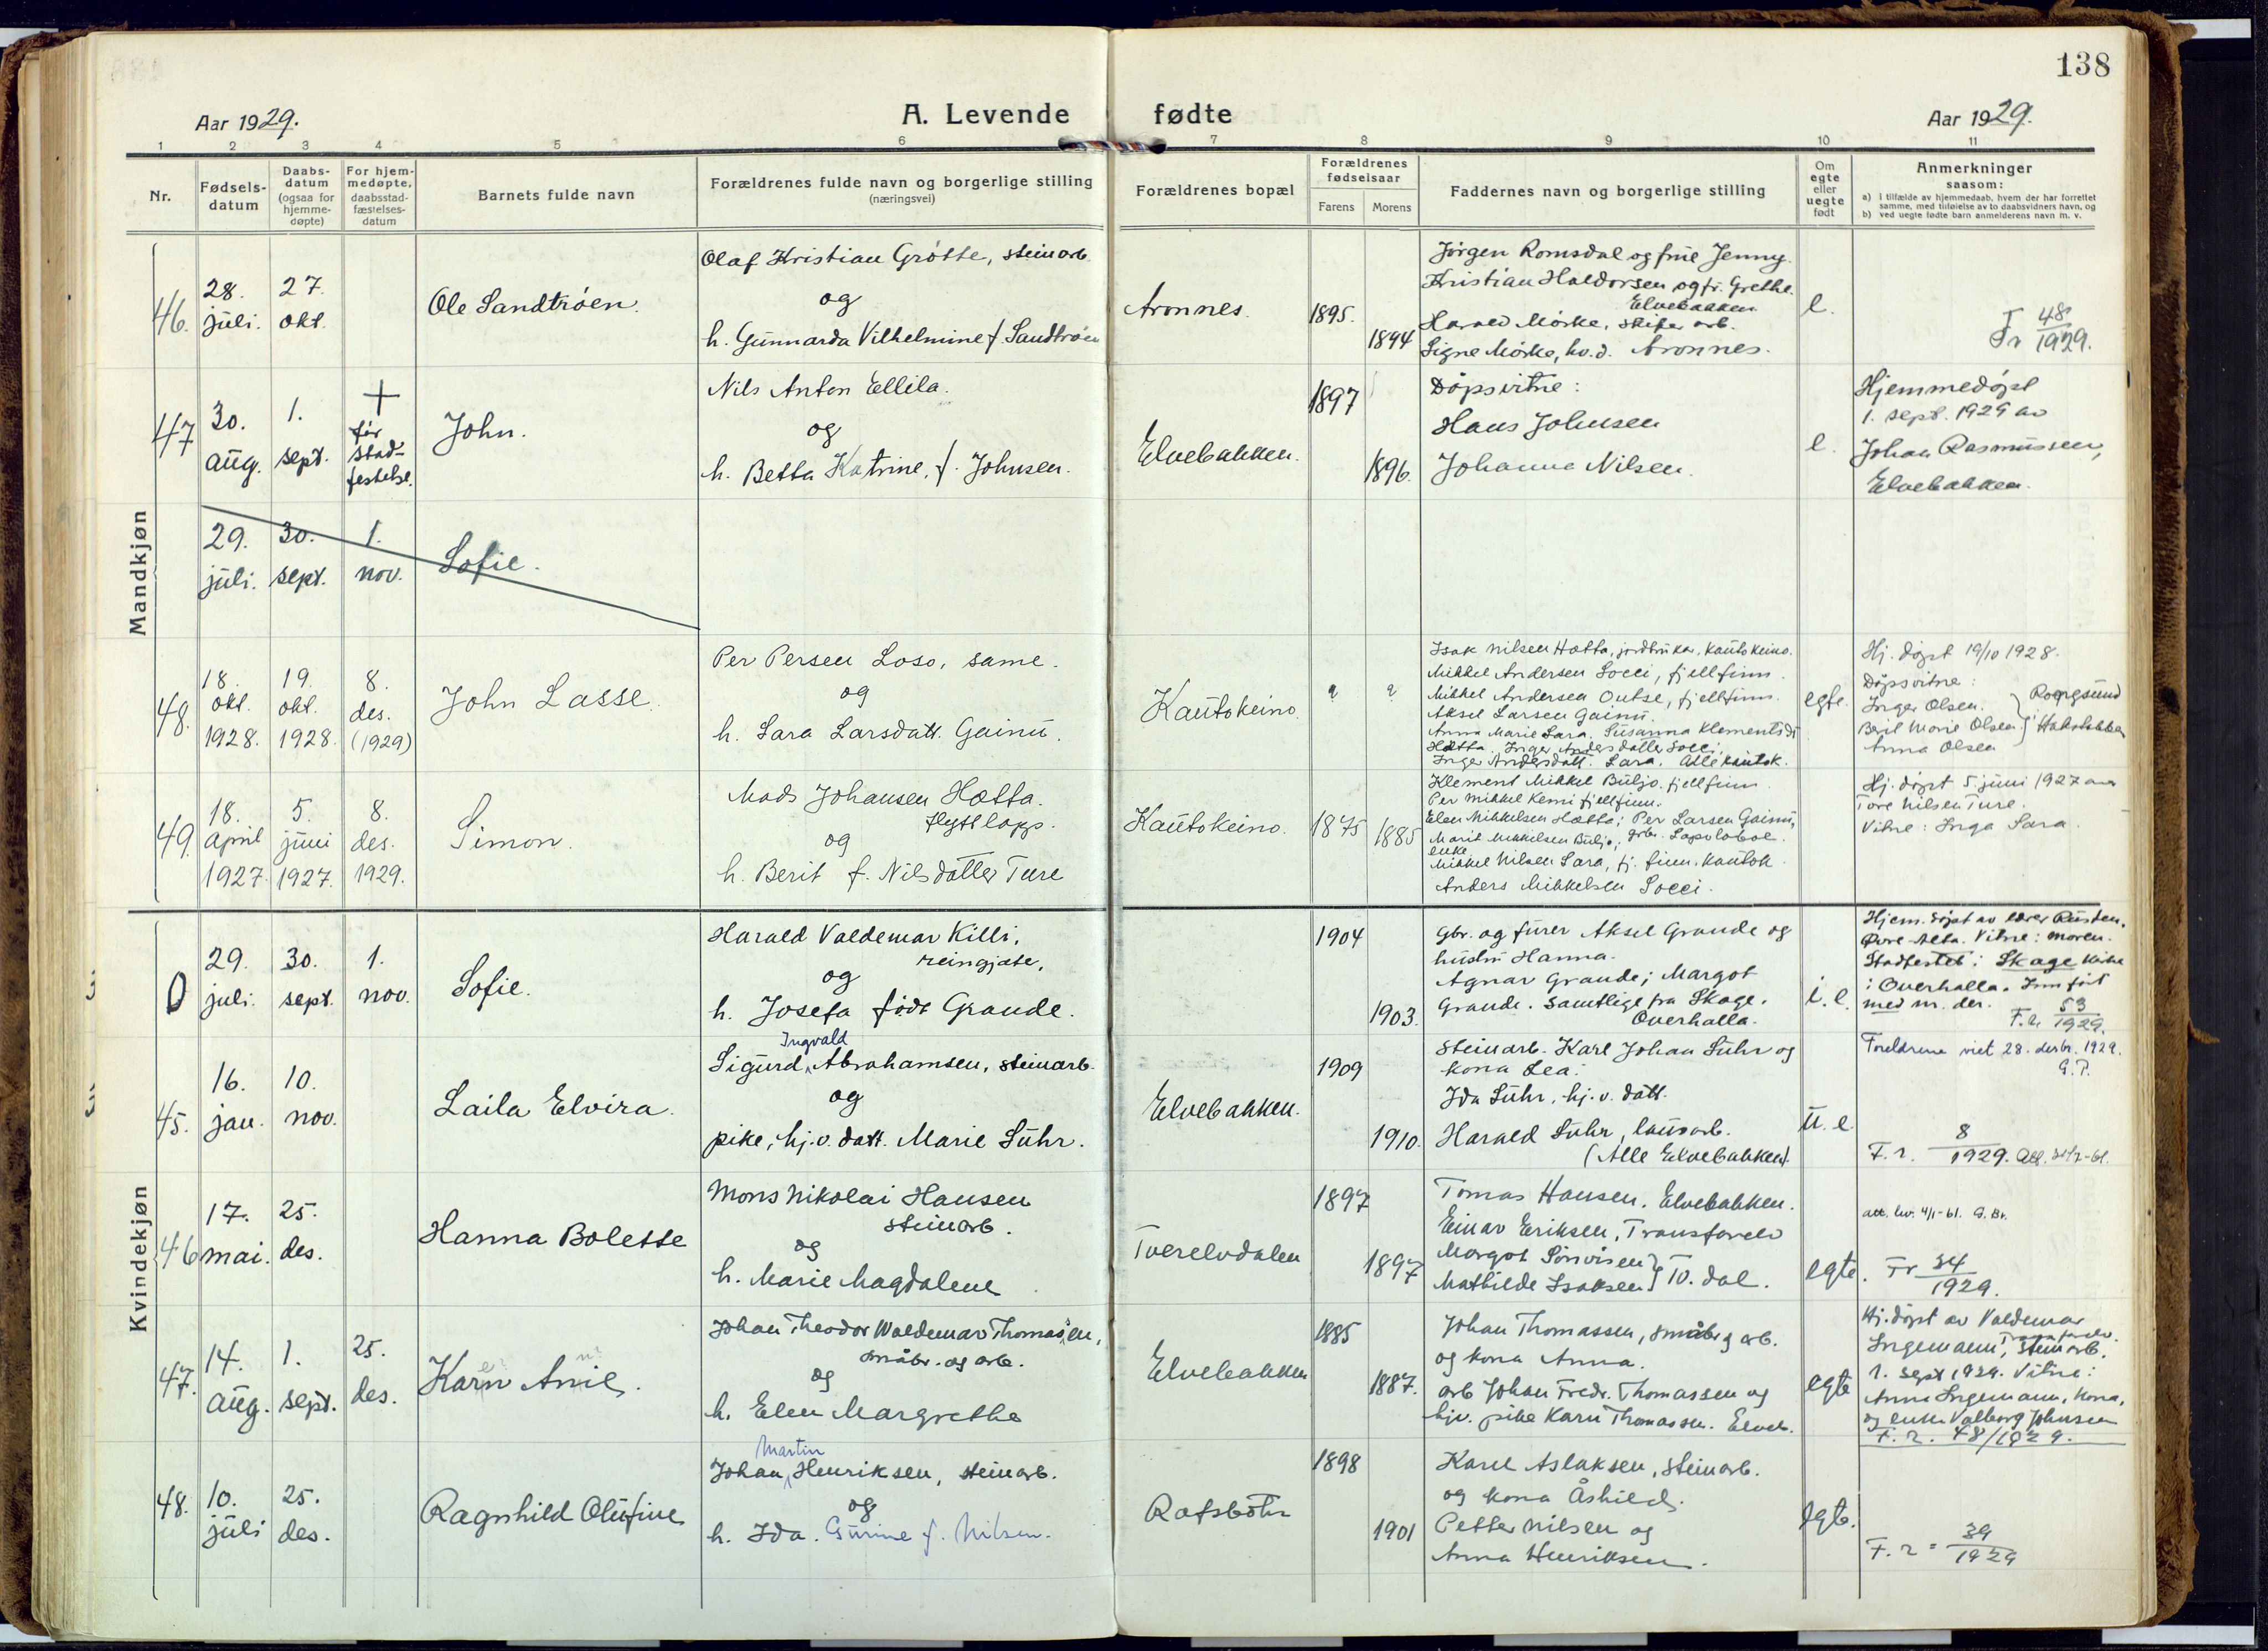 138
Aar 1929.
A. Levende fødte
Aar 1929.
1 2 3 4 5 6 7 8 9 10 11
Nr.
Fødsels-
datum
Daabs-
datum
(ogsaa for
hjemme-
døpte)
For hjem-
medøpte,
daabsstad-
fæstelses-
datum
Barnets fulde navn
Forældrenes fulde navn og borgerlige stilling
(næringsvei)
Forældrenes bopæl
Forældrenes
fødselsaar
Farens
Morens
Faddernes navn og borgerlige stilling
Om
egte
eller
uegte
født
Anmerkninger
saasom:
a) i tilfælde av hjemmedaab, hvem der har forrettet
samme, med tilføielse av to daabsvidners navn, og
b) ved uegte fødte barn anmelderens navn m. v.
Mandkjøn
46.
28.
juli.
27.
okt.
Ole Sandtrøen.
Olaf Kristian Grøtte, steinarb.
og
h. Gunnarda Vilhelmine f. Sandtrøen
Aronnes.
1895.
1894
Jørgen Romsdal og frue Jenny.
Kristian Haldorsen og fr. Grethe.
Elvebakken
Harald Mørke, skifer arb.
Signe Mørke, hv.d. Aronnes.
e.
Fr 48/1929.
47
30.
aug.
1.
sept.
+
før
stad-
festelse.
John.
Nils Anton Ellila.
og
h. Betta Katrine, f. Johnsen.
Elvebakken.
1897
1896.
Døpsvitne:
Hans Johnsen
Johanna Nilsen.
e.
Hjemmedøpt
1. sept. 1929 av
Johan Rasmussen,
Elvebakken.
29.
juli.
30.
sept.
1.
nov.
Sofie.
48.
18.
okt.
1928.
19.
okt.
1928.
8.
des.
(1929)
John Lasse.
Per Persen Loso, same.
og
h. Sara Larsdatt. Gainu.
Kautokeino.
?
?
Isak Nilsen Hætta, jordbruker, Kautokeino.
Mikkel Andersen Socci, fjellfinn.
Mikkel Andersen Outse, fjellfinn.
Aksel Larsen Gainu.
Anna Marie Sara. Susanna Klementsdt
Hætta. Inger Andersdatter Socci,
Inger Andersdatt. Sara. Alle Kautok.
egte.
Hj. døpt 19/10 1928.
Døpsvitne:
Inger Olsen.
Beril Marie Olsen.
Anna Olsen
49.
18.
april
1927.
5.
juni
1927.
8.
des.
1929.
Simon.
Mads Johansen Hætta.
flyttlapp.
og
h. Berit f. Nilsdatter Ture
Kautokeino.
1875
1885
Klement Mikkel Buljo, fjellfinn.
Per Mikkel Kemi fjellfinn.
Elen Mikkelsen Hætta; Per Larsen Gainu,
Marit Mikkelsen Buljo;
enke
Mikkel Nilsen Sara, fj. finn, Kautok.
Anders Mikkelsen Socci.
Hj. døpt 5. juni 1927 av
Tore Nilsen Ture.
Vitne: Inga Sara.
Kvindekjøn
0
29.
juli.
30.
sept.
1.
nov.
Sofie.
Harald Valdemar Killi,
reingjæte,
og
h. Josefa født Grande.
1904
1903.
Gbr. og furer Aksel Grande og
hustru Hanna.
Agnar Grande; Margot
Grande. Samtlige fra Skage.
Overhalla.
i. e.
Hjem. døpt av lærer Rusten,
Øvre-Alta. Vitne: moren.
Stadfestet i Skage kirke
i Overhalla. Innført
med nr. der.
F.r. 53/1929.
45.
16.
jan.
10.
nov.
Laila Elvira.
Ingvald
Sigurd Abrahamsen, steinarb.
og
pike, hj.v. datt. Marie Suhr.
Elvebakken.
1909
1910.
Steinarb. Karl Johan Suhr og
kona Lea.
Ida Suhr, hj.v. datt.
Harald Suhr, lausarb.
(Alle Elvebakken).
u. e.
Foreldrene viet 28. desbr. 1929.
G.P.
F.r. 8/1929.
46
17.
mai.
25.
des.
Hanna Bolette
Mons Nikolai Hansen
steinarb.
og
h. Marie Magdalene
Tverelvdalen
1897
1897
Tomas Hansen. Elvebakken.
Einar Eriksen, Transfarelv
Margot Sørvisen
Mathilde Isaksen } T. dal.
egte.
att. lev. 4/1-61. G. Br.
Fr 34/1929.
47.
14.
aug.
1.
sept.
25.
des.
Karn Anie.
Johan Theodor Waldemar Thomassen,
småbr. og arb.
og
h. Elen Margrethe
Elvebakken
1885
1887.
Johan Thomassen, småbr. og arb.
og kona Anna.
arb Johan Fredr. Thomassen og
hjv. pike Karn Thomassen. Elveb.
egte
Hj. døpt av Valdemar
Ingemann, Transfarelv. steinarb.
1. sept 1929. Vitne:
Anna Ingemann, kona,
og enken Valborg Johnsen
F.r. 48/1929.
48.
10.
juli
25.
des.
Ragnhild Olufine
Martin
Johan Henriksen, steinarb.
og
h. Ida. Gurine f. Nilsen.
Rafsbotn
1898
1901
Karl Aslaksen, steinarb.
og kona Åshild.
Petter Nilsen og
Anna Henriksen.
egte.
F.r = 39/1929